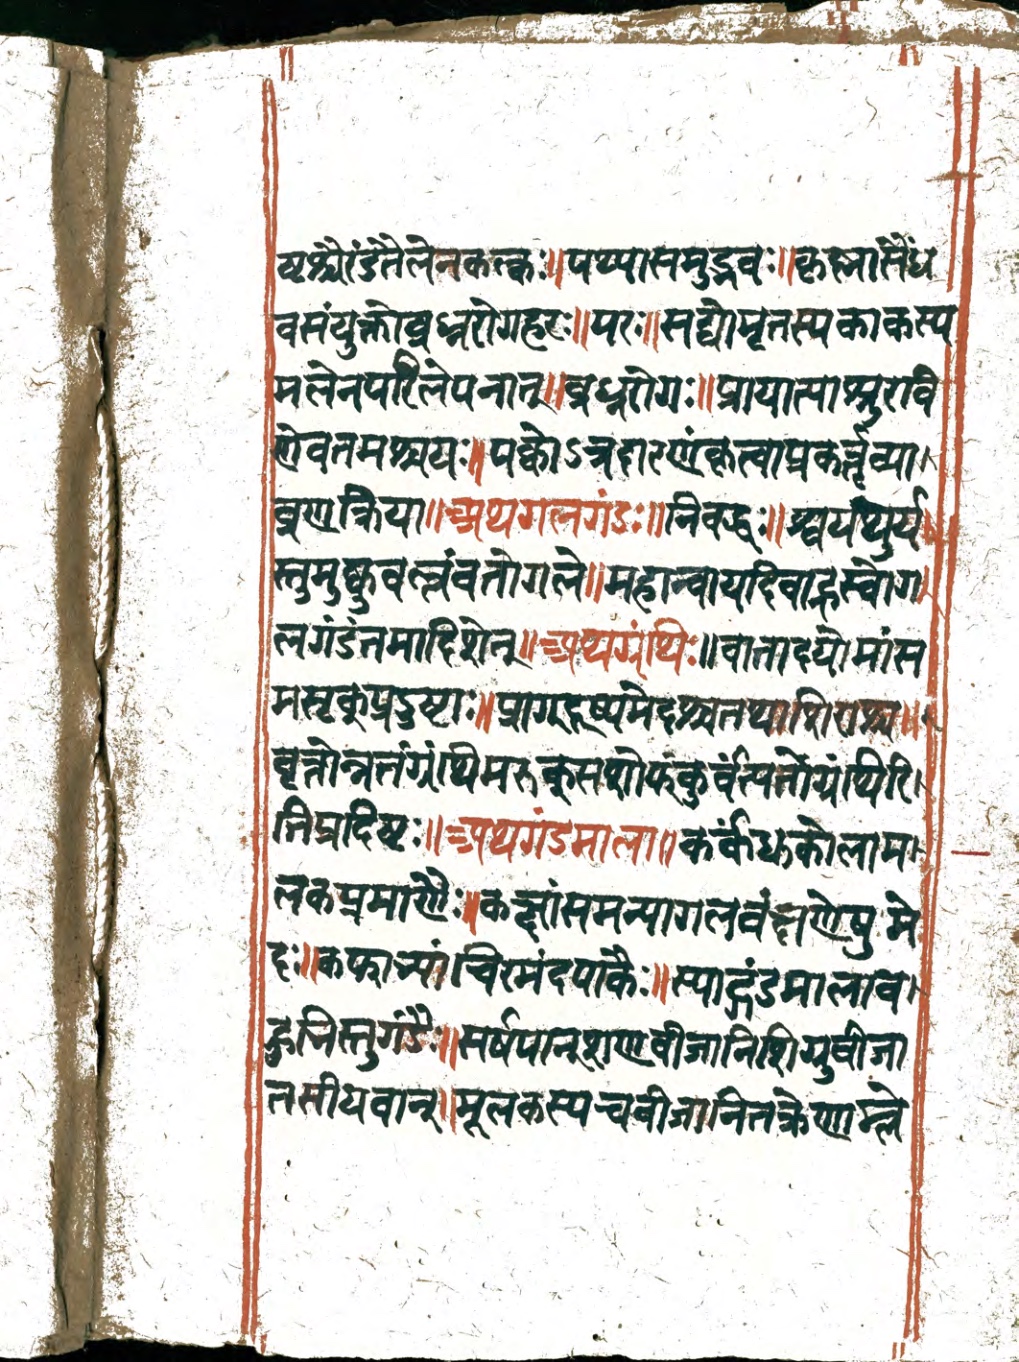 घृष्टश्चैरंडतैलेनकल्कः॥पथ्यासमुद्भवः॥कृष्णासैंध
वसंयुक्तोब्रध्नरोगहरः॥परः॥सद्योमृतस्यकाकस्य
मलेनपरिलेपनात्॥ब्रध्नरोगः॥प्रायात्याश्रुरवि
णेवतमश्चयः॥पक्वोऽत्रदारणंकृत्वाप्रकर्त्तव्या
व्रणक्रिया॥अथगलगंडः॥निवद्धः॥श्वयथुर्य
स्तुमुष्कवल्लंवतोगले॥महान्वायदिवाह्रस्वोग
लगंडंतमादिशेत्॥अथग्रंथिः॥वातादयोमांस
मसृक्प्रदुष्टाः॥प्राग्दूष्यमेदश्चतथाशिराश्च॥
वृत्तोन्नतंग्रंथिमरुक्सशोफंकुर्वंत्यतोग्रंथिरि
तिप्रदिष्टः॥अथगंडमाला॥कर्कंधुकोलाम
लकप्रमाणैः॥कक्षांसमन्यागलवंक्षणेषुमे
दः॥कफाभ्यांचिरमंदपाकैः॥स्याद्गंडमालाव
हुभिस्तुगंडैः॥सर्षपान्शणवीजानिशिग्रुवीजा
तसीयवान्॥मूलकस्यचवीजानितक्रेणाम्ले